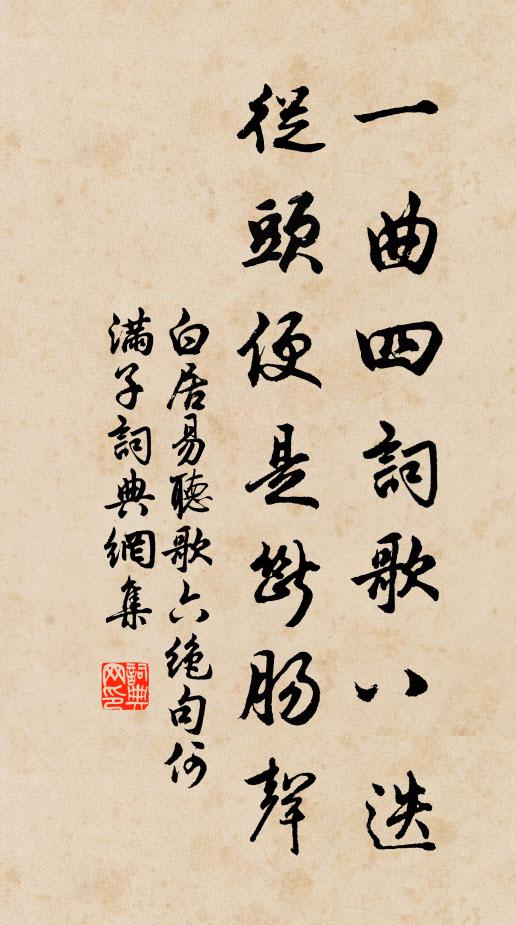 一曲四詞歌八迭
從頭便是斷腸聲
白居易聽歌六絕句何
滿子詞典網集
詞典網印